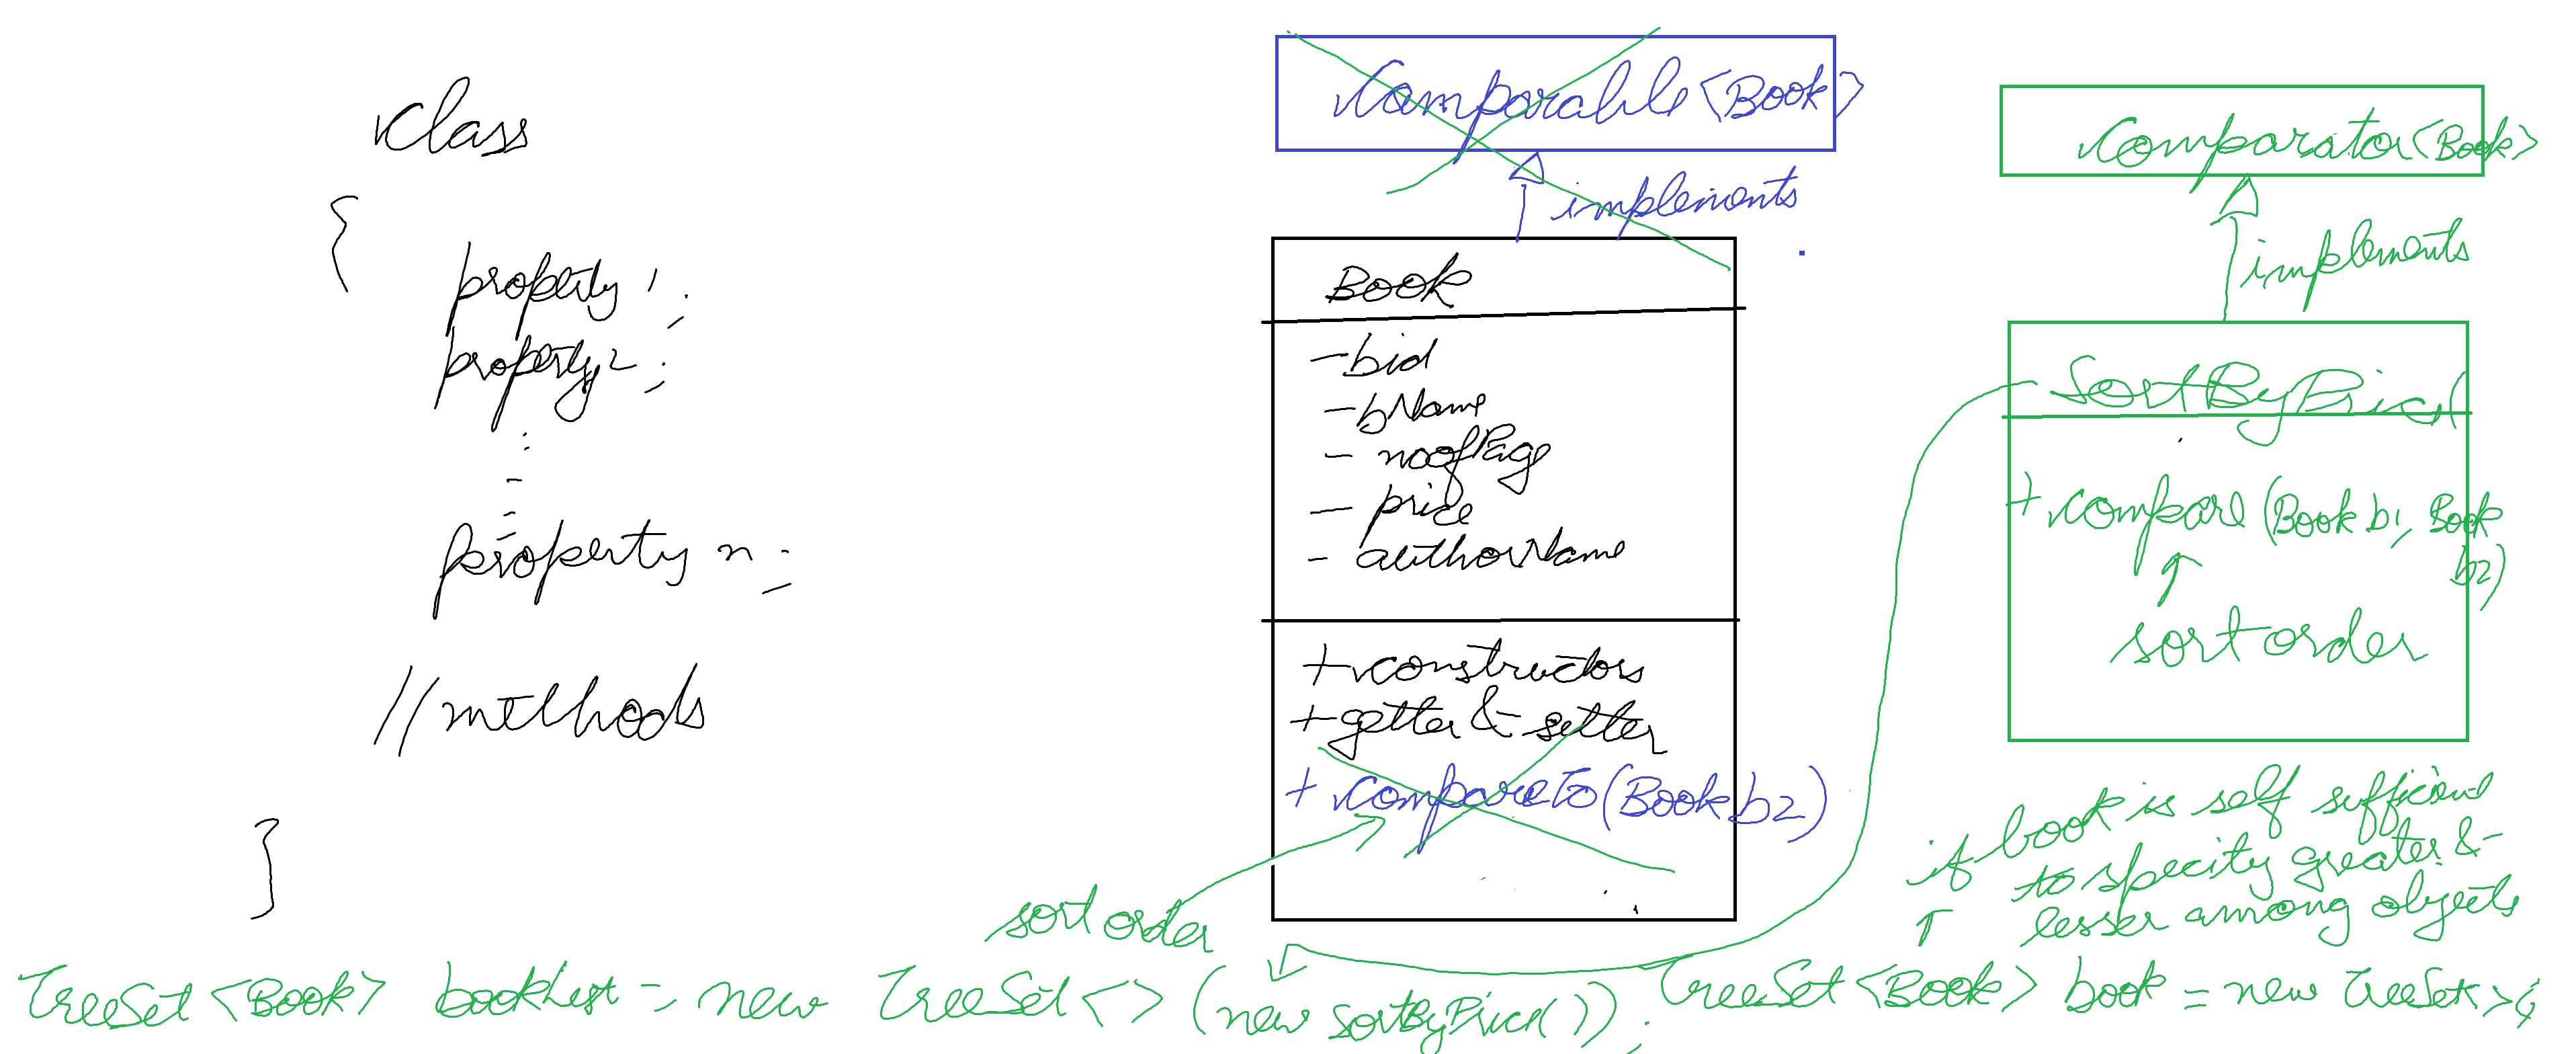 class
{
property 1 ;
property 2 ;
property n ;
// methods
}
Comparable <Book>
implements
Book
- bid
- bName
- noofPage
- price
- authorName
+ constructors
+ getter & setter
+ compareTo (Book b2)
sort order
Comparator <Book>
implements
SortByPrice
+ compare (Book b1, Book
b2)
sort order
if book is self sufficient
to specity greater &
lesser among objects
TreeSet <Book> bookList = new TreeSet < > (new SortByPrice( ));
TreeSet <Book> book = new TreeSet< >(